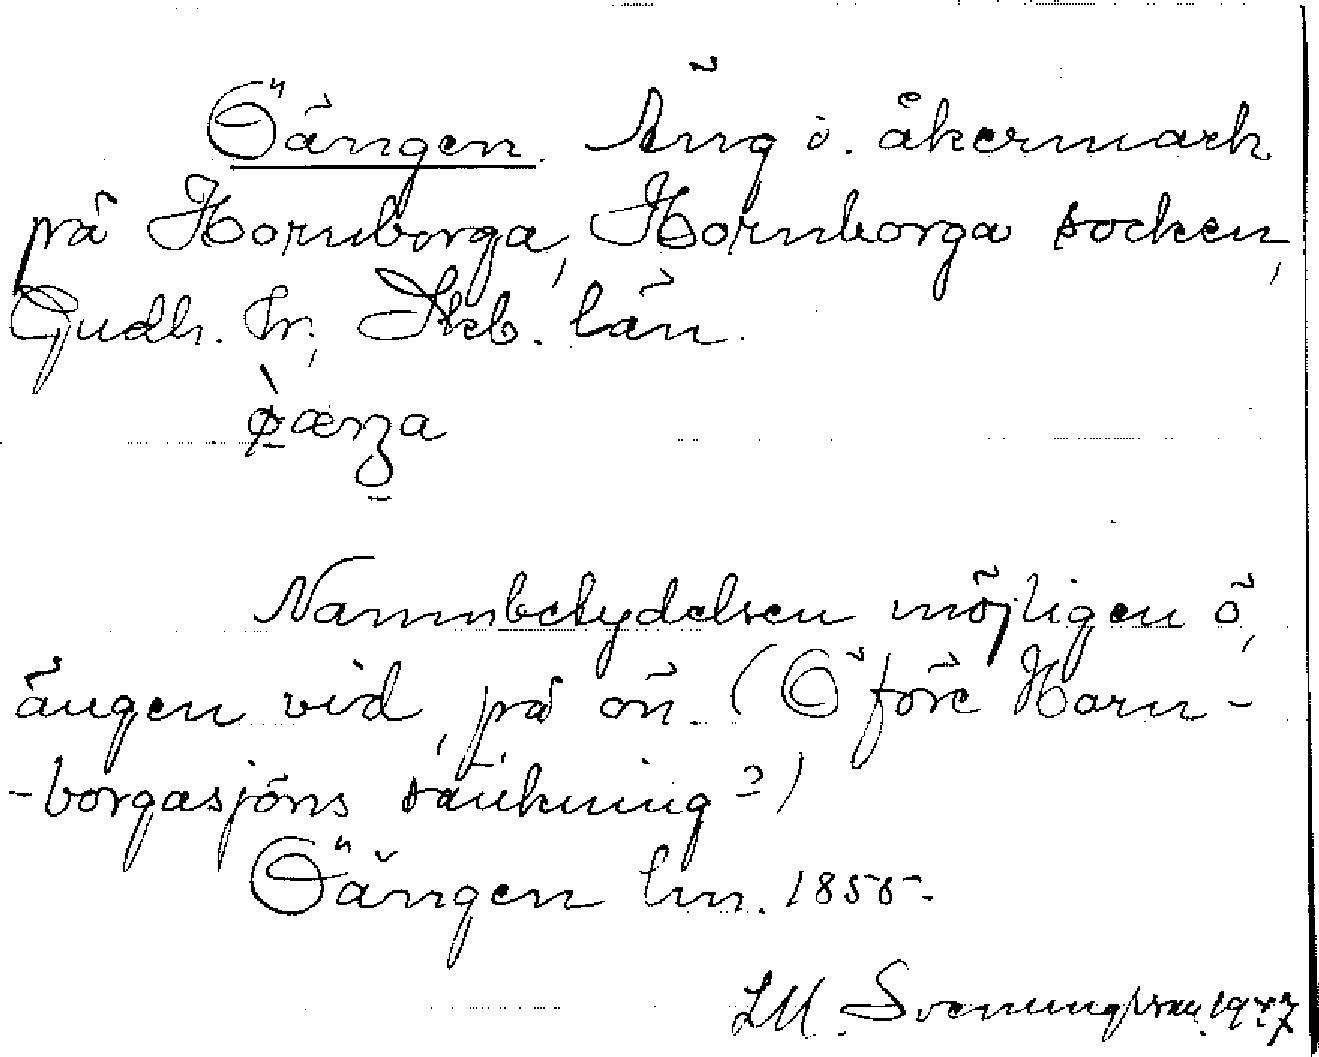 Öängen. Äng o. åkermark
på Hornborga, Hornborga socken,
Gudh. hr, Skb. län.
Namnbetydelsen möjligen ö,
ängen vid, på ön. (Ö före Horn-
-borgasjöns sänkning?)
Öängen lm. 1855.
LM. Svenungsson. 1927